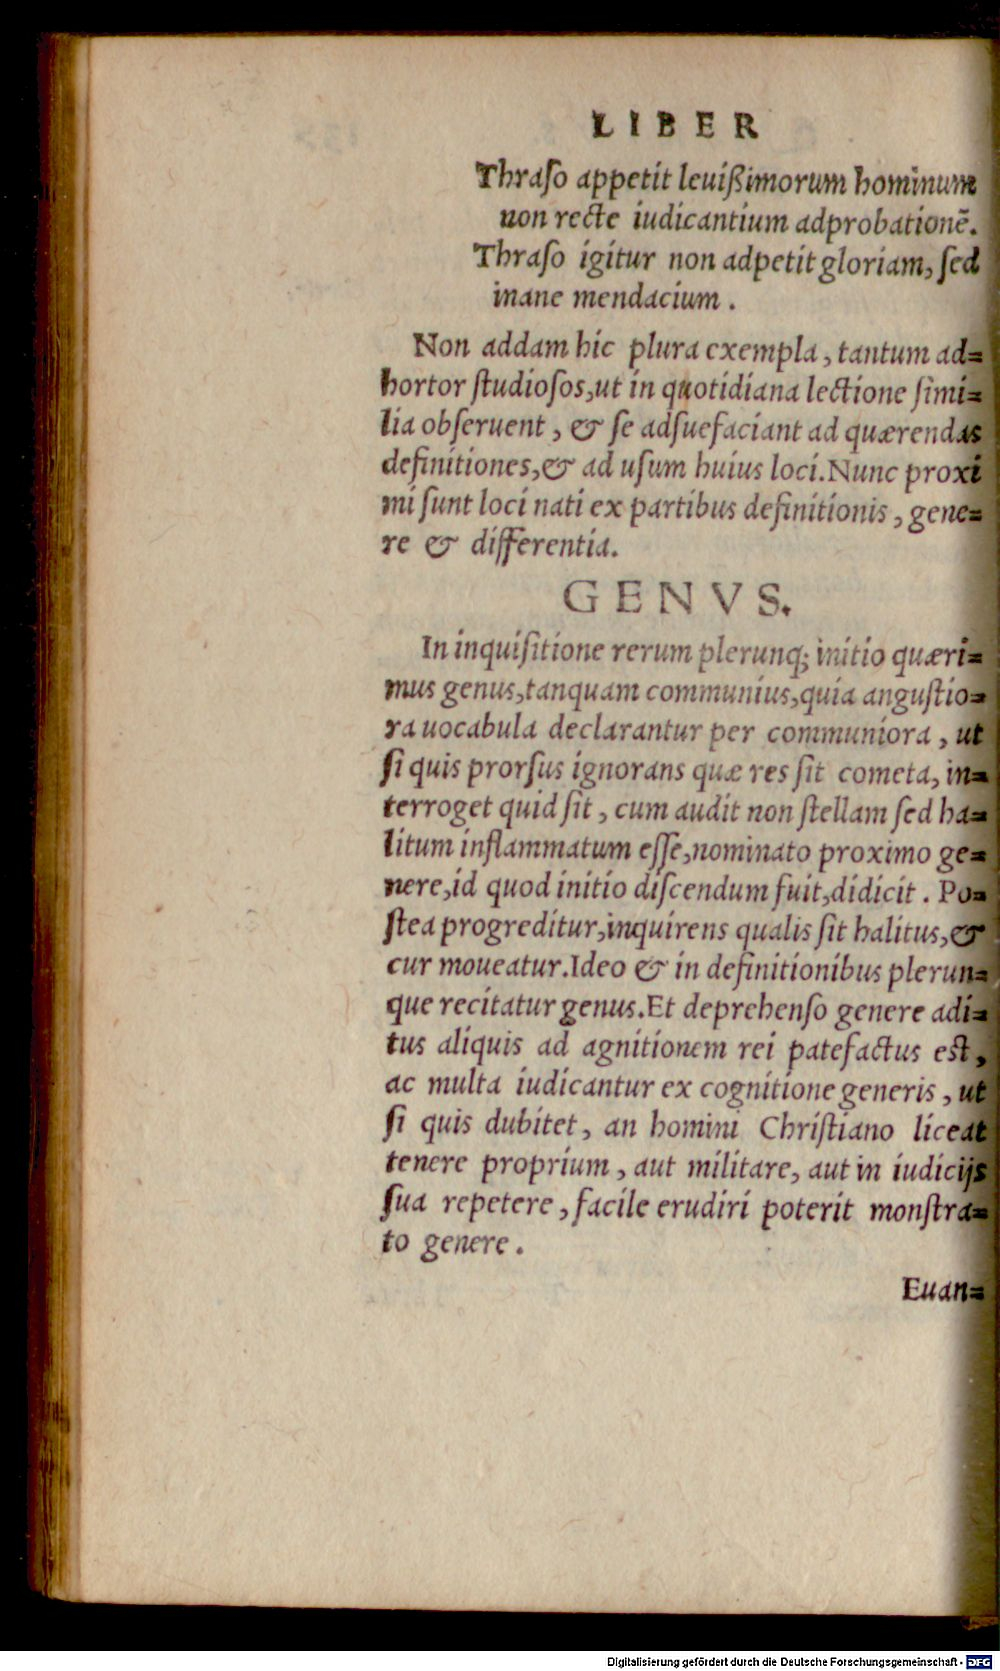 LIBER
Thraſo appetit leuißimorum hominum
uon recte iudicantium adprobationẽ.
Thraſo igitur non adpetit gloriam, ſed
inane mendacium.
Non addam hic plura exempla, tantum ad=
hortor ſtudioſos, ut in quotidiana lectione ſimi=
lia obſeruent, & ſe adſuefaciant ad quærendas
definitiones, & ad uſum huius loci. Nunc proxi
mi ſunt loci nati ex partibus definitionis, gene=
re & differentia.
GENVS.
In inquiſitione rerum plerunq; initio quæri=
mus genus, tanquam communius, quia anguſtio=
ra uocabula declarantur per communiora, ut
ſi quis prorſus ignorans quæ res ſit cometa, in=
terroget quid ſit, cum audit non ſtellam ſed ha=
litum inflammatum eſſe, nominato proximo ge=
nere, id quod initio diſcendum fuit, didicit. Po=
ſtea progreditur, inquirens qualis ſit halitus, &
cur moueatur. Ideo & in definitionibus plerun=
que recitatur genus. Et deprehenſo genere adi=
tus aliquis ad agnitionem rei patefactus eſt,
ac multa iudicantur ex cognitione generis, ut
ſi quis dubitet, an homini Chriſtiano liceat
tenere proprium, aut militare, aut in iudicijs
ſua repetere, facile erudiri poterit monſtra=
to genere.
Euan=
Digitalisierung gefördert durch die Deutsche Forschungsgemeinschaft - DFG